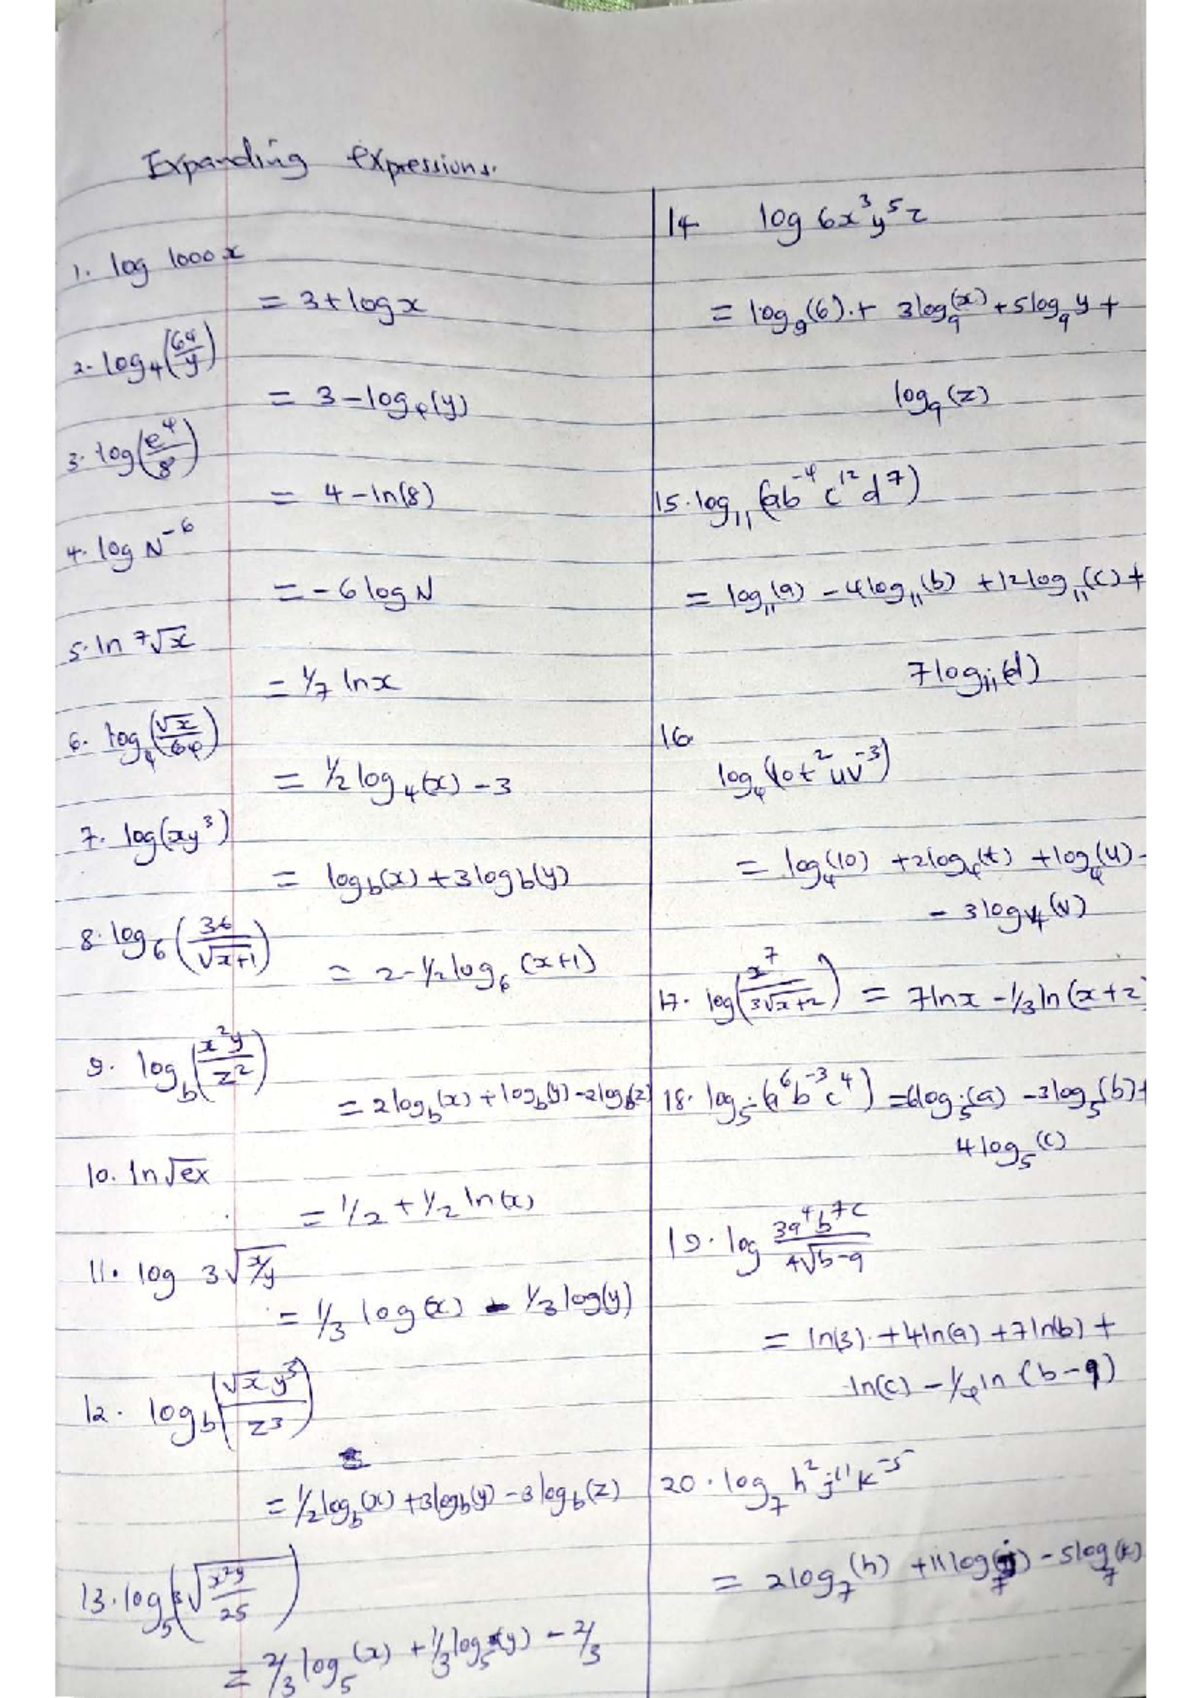 Expanding expressions.
1. log 1000x
= 3 + log x
2. log₄(64/y)
= 3 - log₄(y)
3. log(e⁴/8)
= 4 - ln(8)
4. log N⁻⁶
= -6 log N
5. ln ⁷√x
= 1/7 ln x
6. log₄(√x/64)
= 1/2 log₄(x) - 3
7. log(xy³)
= log b(x) + 3 log b(y)
8. log₆(36/√x+1)
= 2 - 1/2 log₆ (x+1)
9. log b(x²y/z²)
= 2 log b(x) + log b(y) - 2 log b(z)
10. ln √ex
= 1/2 + 1/2 ln(x)
11. log 3√x/y
= 1/3 log(x) - 1/3 log(y)
12. log b(√x y³/z³)
= 1/2 log b(x) + 3 log b(y) - 3 log b(z)
13. log₅(³√x²y/25)
= 2/3 log₅(x) + 1/3 log₅(y) - 2/3
14 log 6x³y⁵z
= log₉(6). + 3 log₉(x) + 5 log₉ y +
log₉(z)
15. log₁₁(ab⁻⁴c¹²d⁷)
= log₁₁(a) - 4 log₁₁(b) + 12 log₁₁(c) +
7 log₁₁(d)
16.
log₄(10t²uv⁻³)
= log₄(10) + 2 log₄(t) + log₄(u) -
- 3 log₄(v)
17. log(x⁷/3√x+2) = 7 ln x - 1/3 ln(x+2)
18. log₅(a⁶b⁻³c⁴) = 6 log₅(a) - 3 log₅(b) +
4 log₅(c)
19. log 3a⁴b⁷c/4√b-9
= ln(3). + 4 ln(a) + 7 ln(b) +
ln(c) - 1/4 ln (b-9)
20. log₇ h²j¹¹k⁻⁵
= 2 log₇(h) + 11 log₇(j) - 5 log₇(k)